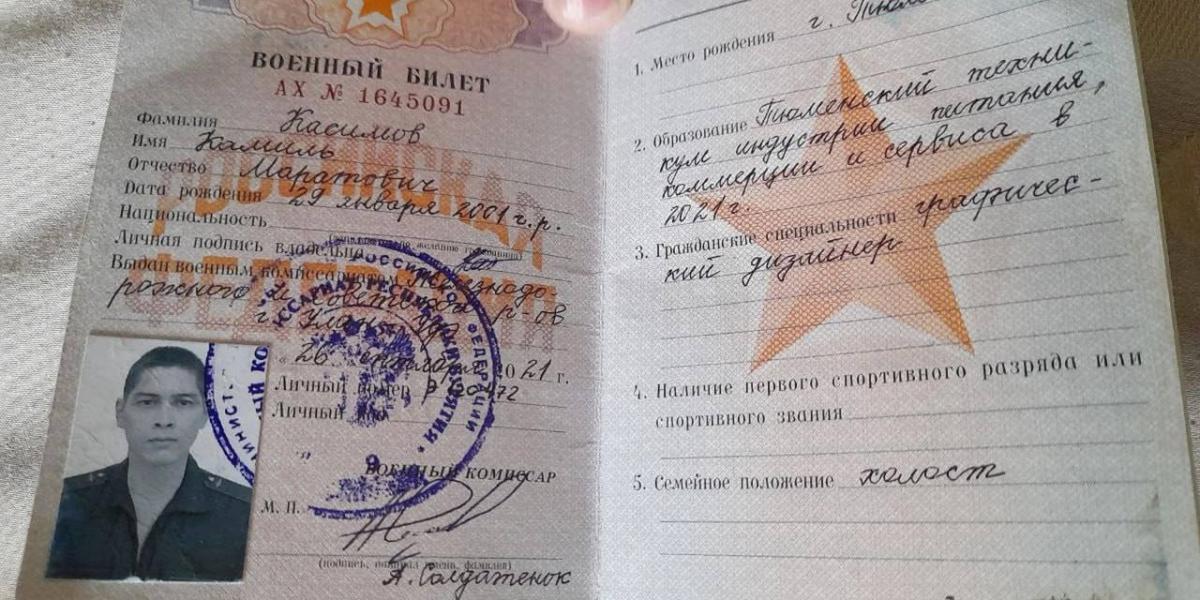 ВОЕННЫЙ БИЛЕТ
АХ № 1645091
Фамилия Касимов
Имя Камиль
Отчество Маратович
Дата рождения 29 января 2001 г.р.
Национальность
Личная подпись владельца
Выдан военным комиссариатом Железнодо
рожного и Советского р-ов
г. Улан-Удэ
" 26 октября 2021 г.
Личный номер
Личный
ВОЕННЫЙ КОМИССАР
М. П.
(подпись, инициал имени, фамилия)
А. Солдатенок
РОССИЙСКАЯ
ФЕДЕРАЦИЯ
1. Место рождения г.
2. Образование Тюменский техни-
кум индустрии питания,
коммерции и сервиса в
2021 г.
3. Гражданские специальности графичес-
кий дизайнер
4. Наличие первого спортивного разряда или
спортивного звания
5. Семейное положение холост